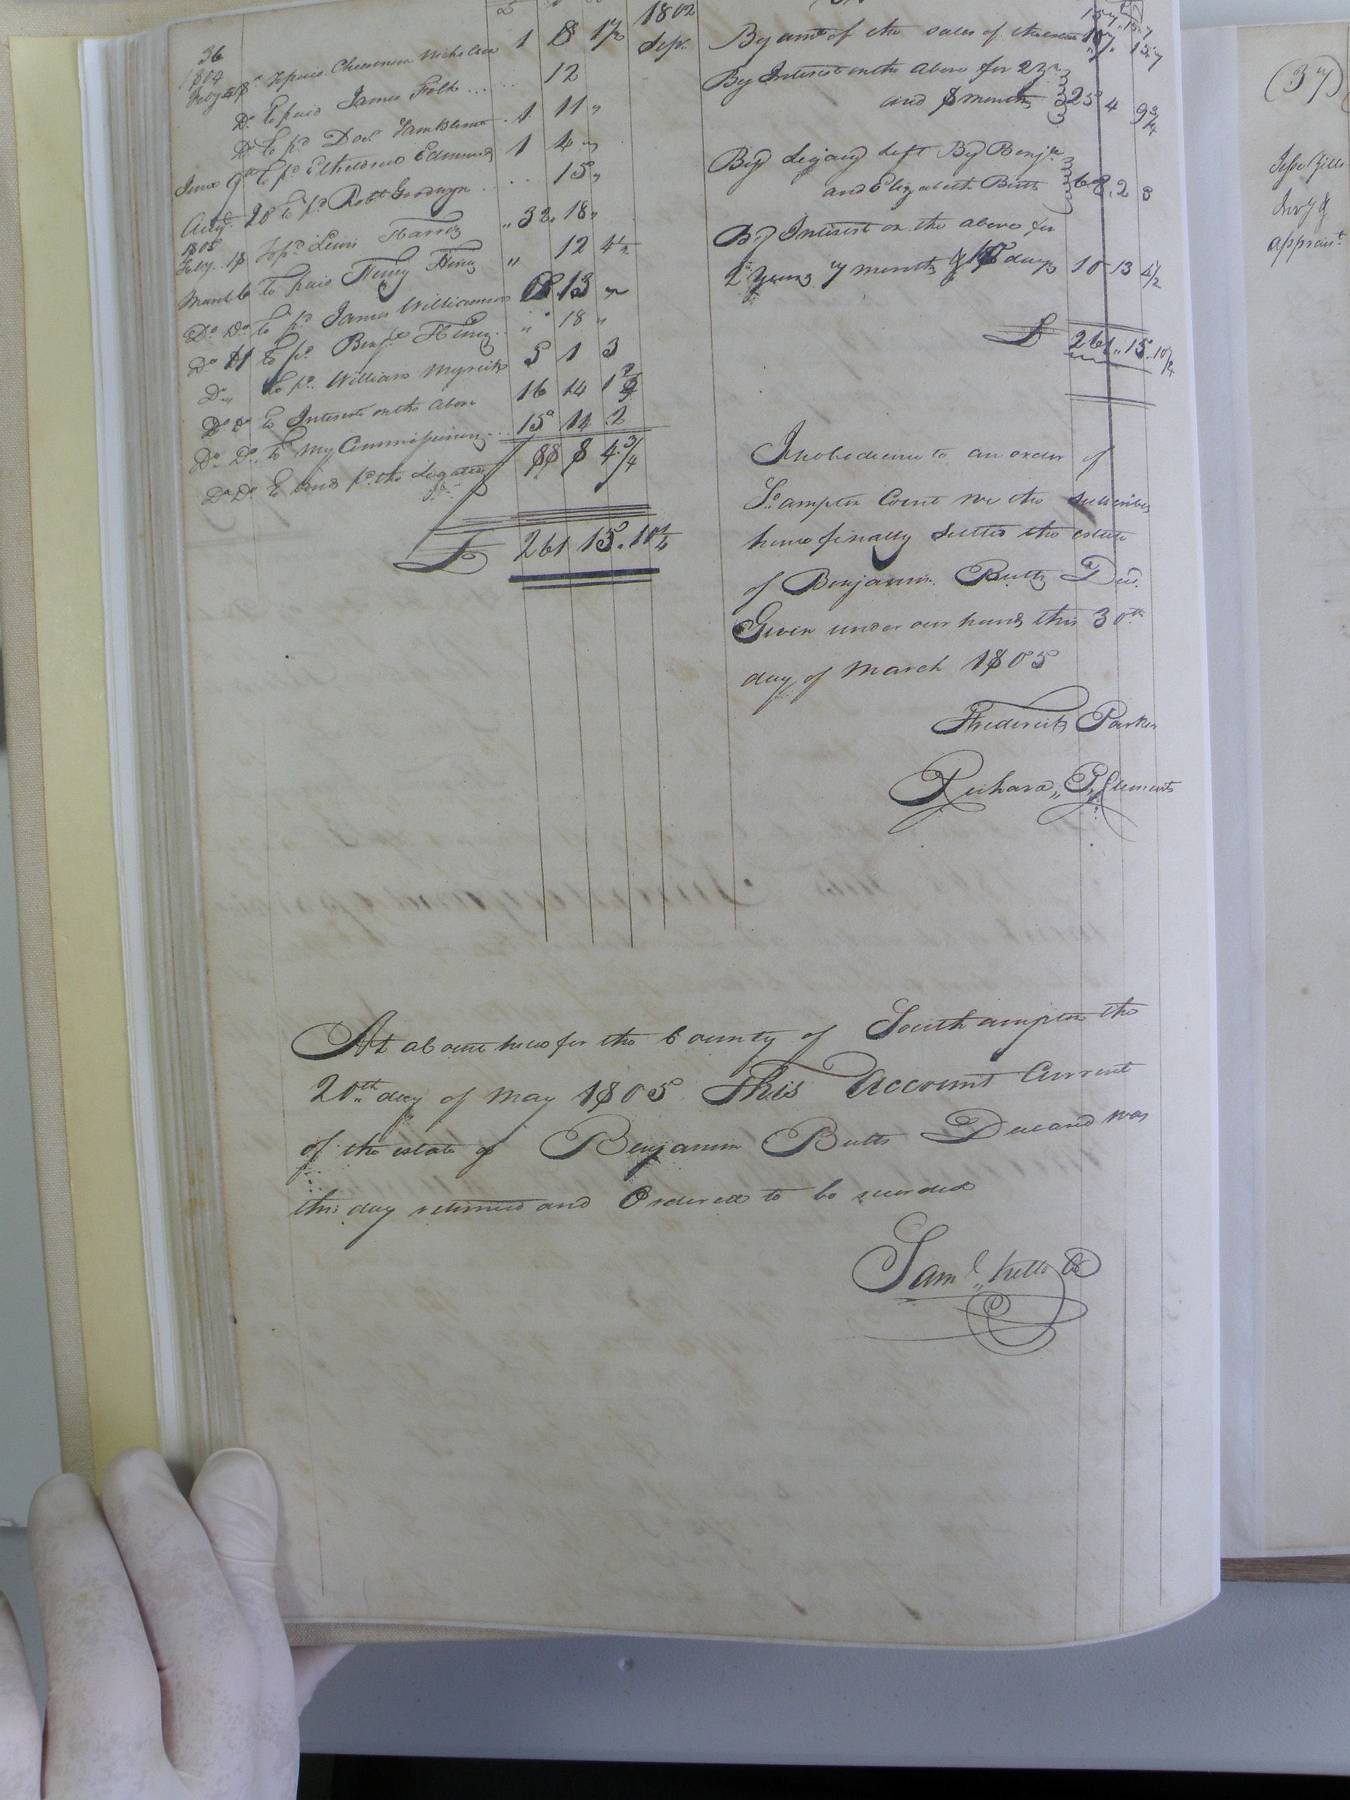 36
1804
Feby 28 To paid Clemmon Nicholson 1 8 1½
Do To paid James Foth .... 12
Do To pd Doct 1 11 "
June 9th To pd Etheldred Edmund 1 4 "
Augt 20 To pd Robt Goodwyn .... 15 "
1805
Feby 18 To pd Lewis Harris " 32. 18 "
March 6 to paid Henry " 12 4½
Do Do to pd James Williamson 13
Do Do to pd Benja " 18 "
Do " To pd William Myrick 5 1 3
Do Do to Interest on the above 16 14 1
Do Do to My Commissions ... 15 14 2
Do Do To pd the Legatees 88 8 4¾
£ 261 15. 10¼
1802
Sepr. By amt of the sales of the estate 157 15 7
By Interest on the above for 2 yrs
and 8 months 25 4 9¾
By Legacy left By Benja
and Elizabeth Butts 68. 2 8
By Interest on the above for
2 years 7 months & days 10 13 4½
£ 261 " 15. 10¼
In obedience to an order of
So.ampton Court we the subscribers
have finally settled the estate
of Benjamin Butts Decd.
Given under our hands this 30th
day of March 1805
Frederick Parker
Richard P. Clements
At a Court held for the County of Southampton the
20th day of May 1805 This Account Current
of the estate of Benjamin Butts Deceased was
this day returned and Ordered to be recorded
Saml. Kello Cl
(37)
Jesse
Invy &
appraismt